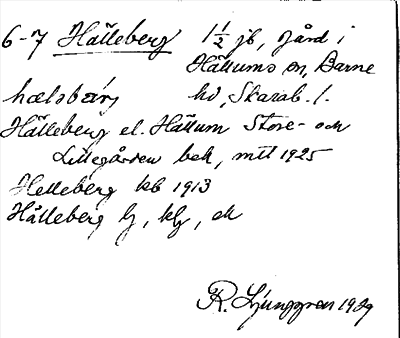 6-7 Hälleberg 1 1/2 jb, gård i
Hällums sn, Barne
hælsbærj hd, Skarab. l.
Hälleberg el. Hällum Store- och
Lillegården bek, mtl 1925
Helleberg kb 1913
Hälleberg lj, klj, ek
R. Ljunggren 1929